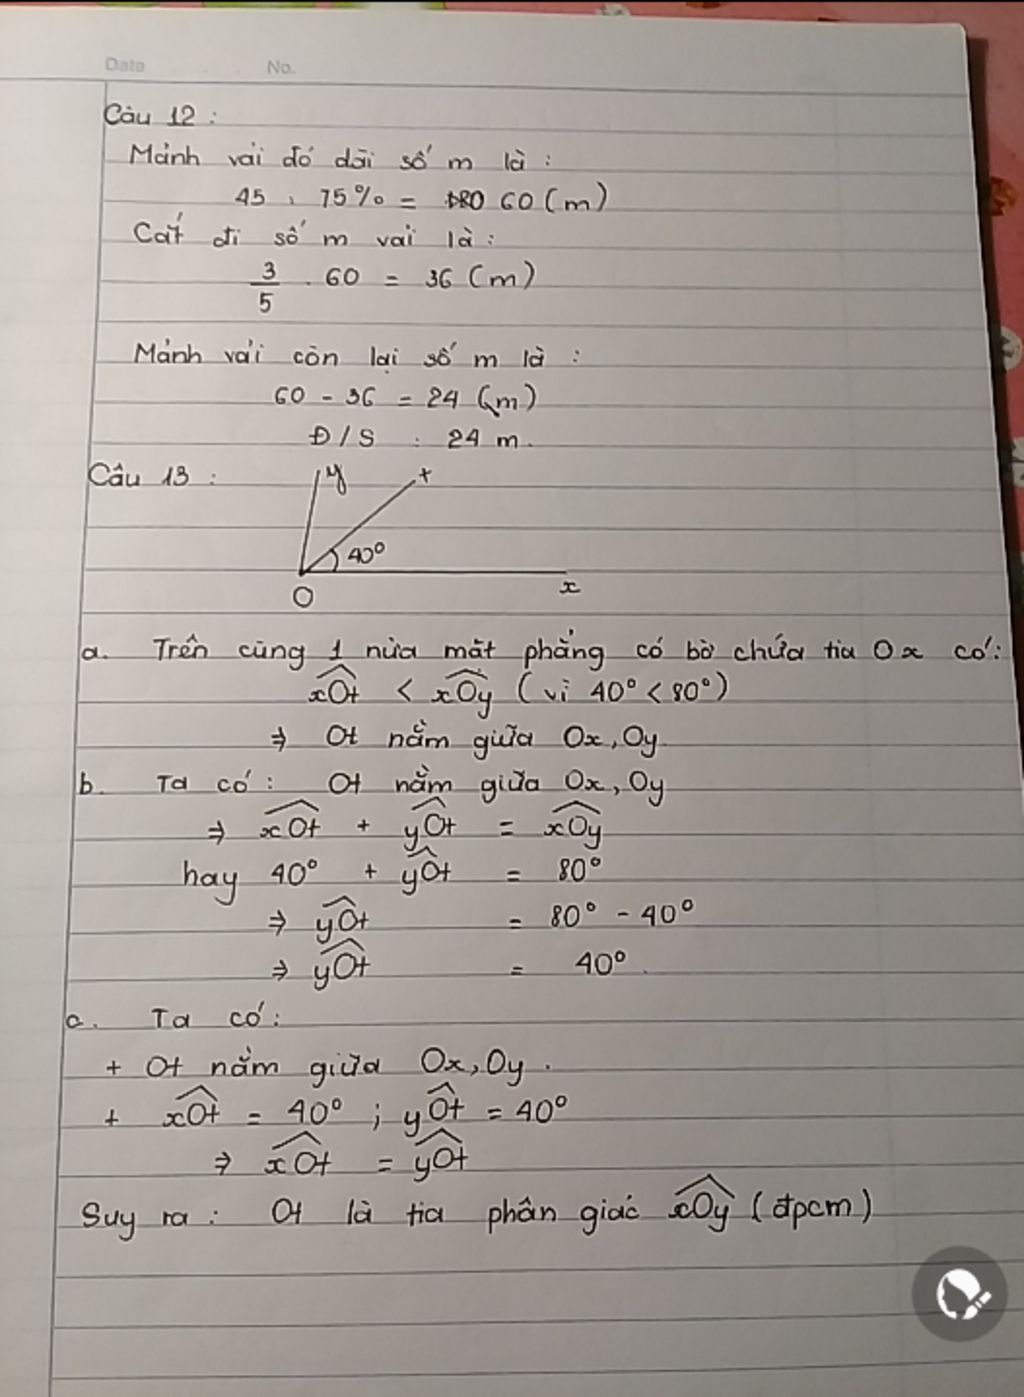 Date No.
Câu 12 :
Mảnh vải đó dài số m là :
45 : 75% = 60 (m)
Cắt đi số m vải là :
3/5 . 60 = 36 (m)
Mảnh vải còn lại số m là :
60 - 36 = 24 (m)
Đ/S : 24 m.
Câu 13 :
y t
40°
O x
a. Trên cùng 1 nửa mặt phẳng có bờ chứa tia Ox có:
xOt < xOy (vì 40° < 80°)
⇒ Ot nằm giữa Ox, Oy.
b. Ta có : Ot nằm giữa Ox, Oy
⇒ xOt + yOt = xOy
hay 40° + yOt = 80°
⇒ yOt = 80° - 40°
⇒ yOt = 40°.
c. Ta có :
+ Ot nằm giữa Ox, Oy.
+ xOt = 40° ; yOt = 40°
⇒ xOt = yOt
Suy ra : Ot là tia phân giác xOy (đpcm)